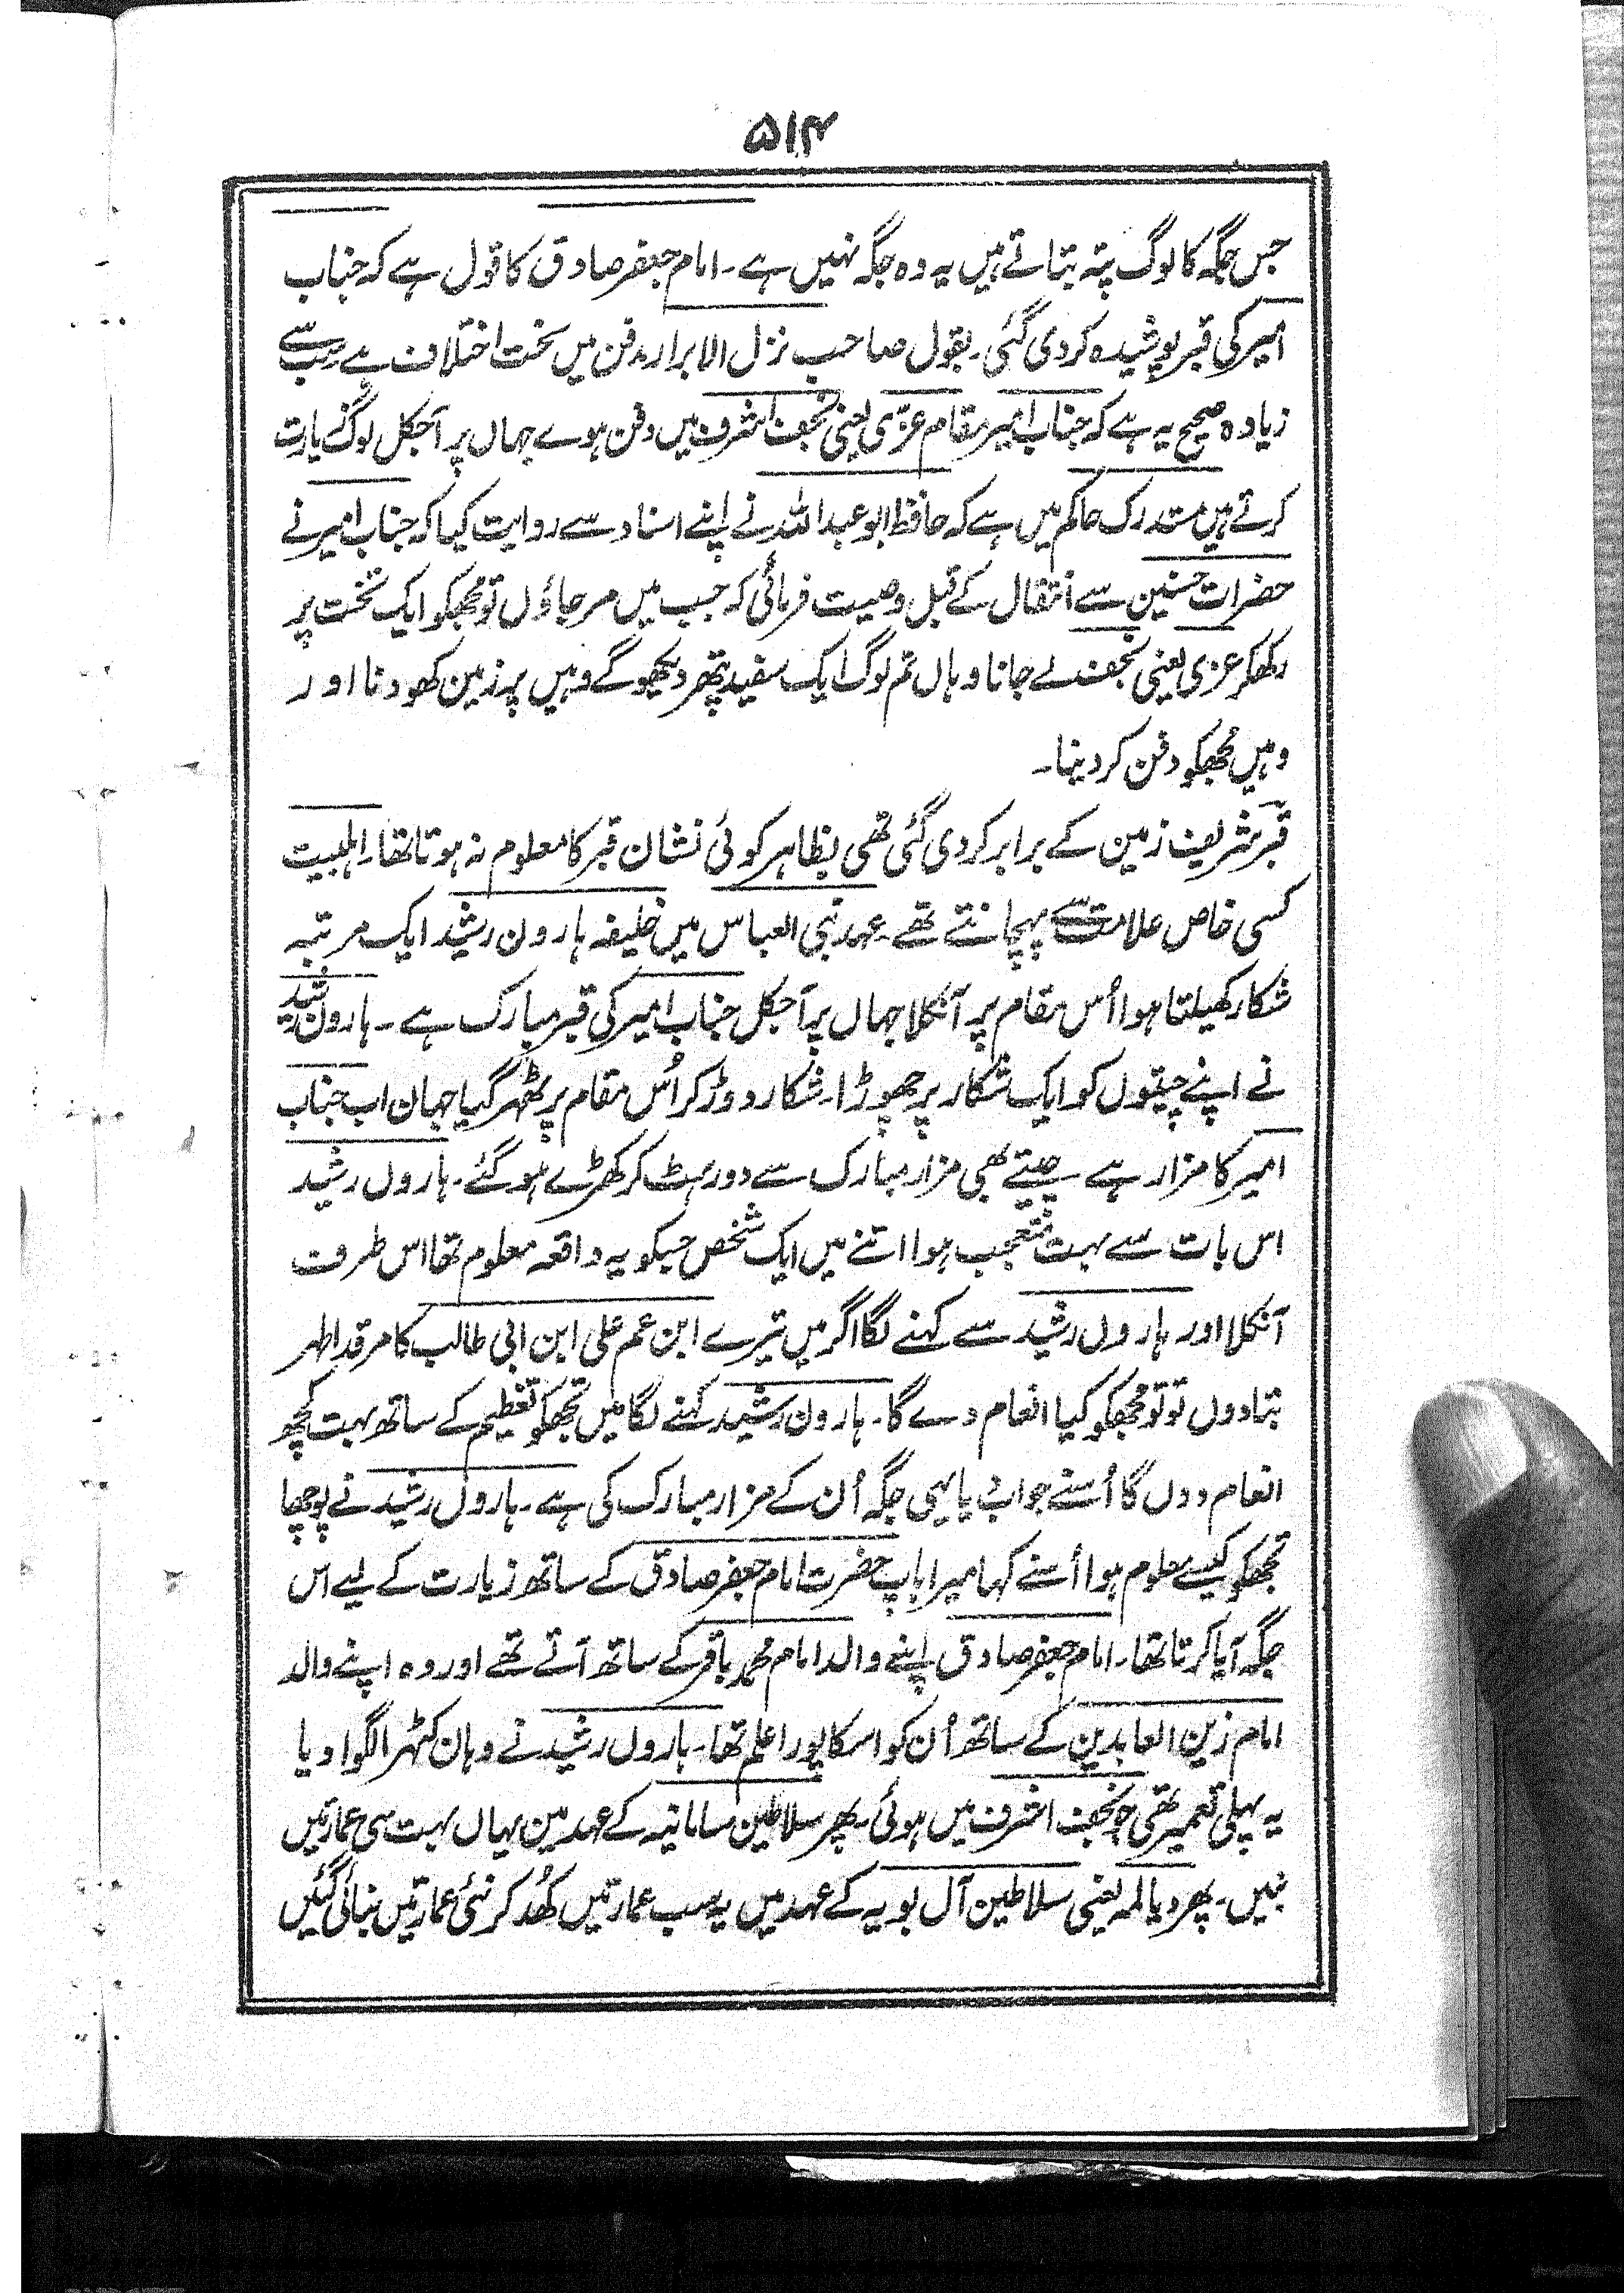 ۵۱۴
جس جگہ کا لوگ پتہ بتاتے ہیں یہ وہ جگہ نہیں ہے۔ امام جعفر صادق کا قول ہے کہ جناب
امیر کی قبر پوشیدہ کردی گئی۔ بقول صاحب نزل الابرار مدفن میں سخت اختلاف ہے سب سے
زیادہ صحیح یہ ہے کہ جناب امیر مقام غرّی یعنی نجف اشرف میں دفن ہوے جہاں پر آجکل لوگ زیارت
کرتے ہیں مستدرک حاکم میں ہے کہ حافظ ابو عبداللہ نے اپنے اسناد سے روایت کیا کہ جناب امیر نے
حضرات حسنین سے انتقال کے قبل وصیت فرمائی کہ جب میں مرجاؤں تو مجھکو ایک تخت پر
رکھکر غری یعنی نجف لے جانا وہاں تم لوگ ایک سفید پتھر دیکھو گے وہیں پر زمین کھودنا اور
وہیں مجھکو دفن کر دینا۔
قبر شریف زمین کے برابر کردی گئی تھی بظاہر کوئی نشان قبر کا معلوم نہ ہوتا تھا۔ اہلبیت
کسی خاص علامت سے پہچانتے تھے۔ عہد بنی العباس میں خلیفہ ہارون رشید ایک مرتبہ
شکار کھیلتا ہوا اُس مقام پر آنکلا جہاں پر آجکل جناب امیر کی قبر مبارک ہے۔ ہارون رشید
نے اپنے چیتوں کو ایک شکار پر چھوڑا۔ شکار دوڑ کر اُس مقام پر ٹھہر گیا جہان اب جناب
امیر کا مزار ہے چیتے بھی مزار مبارک سے دور ہٹ کر کھڑے ہو گئے۔ ہارون رشید
اس بات سے بہت متعجب ہوا اتنے میں ایک شخص جسکو یہ واقعہ معلوم تھا اس طرف
آنکلا اور ہارون رشید سے کہنے لگا اگر میں تیرے ابن عم علی ابن ابی طالب کا مرقد اطہر
بتادوں تو تو مجھکو کیا انعام دے گا۔ ہارون رشید کہنے لگا میں تجھکو تعظیم کے ساتھ بہت کچھ
انعام دوں گا اُسنے جواب دیا یہی جگہ اُن کے مزار مبارک کی ہے۔ ہارون رشید نے پوچھا
تجھکو کیسے معلوم ہوا اُسنے کہا میرا باپ حضرت امام جعفر صادق کے ساتھ زیارت کے لیے اس
جگہ آیا کرتا تھا۔ امام جعفر صادق اپنے والد امام محمد باقر کے ساتھ آتے تھے اور وہ اپنے والد
امام زین العابدین کے ساتھ اُن کو اسکا پورا علم تھا۔ ہارون رشید نے وہان کٹہرا لگوا دیا
یہ پہلی تعمیر تھی جو نجف اشرف میں ہوئی۔ پھر سلاطین سامانیہ کے عہد مین یہاں بہت سی عمارتیں
بنیں۔ پھر دیالمہ یعنی سلاطین آل بویہ کے عہد میں یہ سب عمارتیں کھُد کر نئی عمارتیں بنائی گئیں